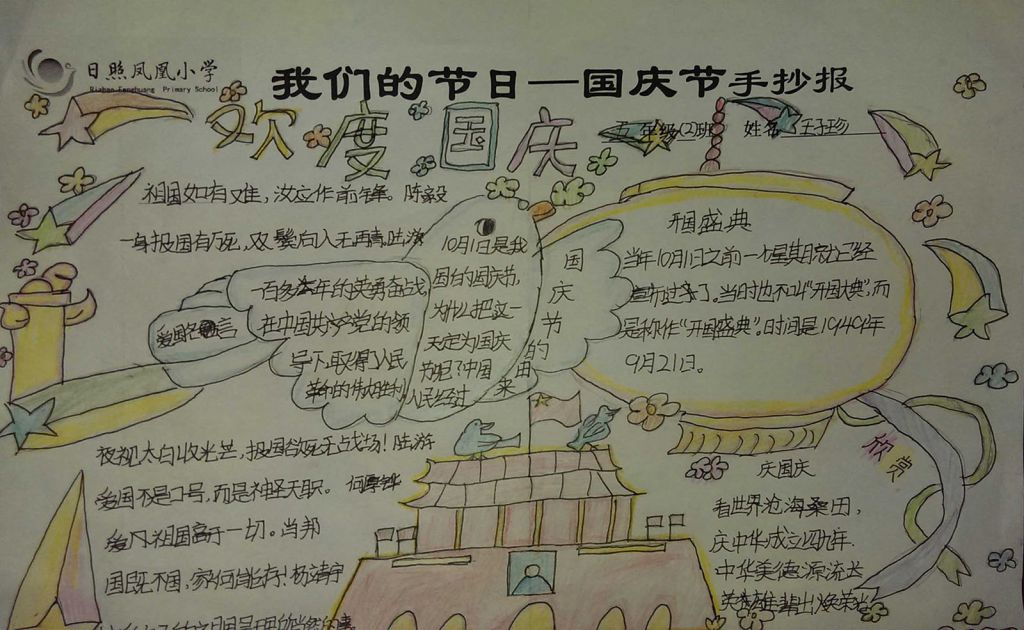 日照凤凰小学
Rizhao Fenghuang Primary School
我们的节日—国庆节手抄报
欢度国庆
五年级(2)班 姓名
祖国如有难，汝应作前锋。陈毅
一身报国有万死，双鬓向人无再青。陆游
爱国名言
国庆节的由来
10月1日是我
国的国庆节，
为什么把这一
天定为国庆
节呢？中国
人民经过
一百多年的英勇奋战
在中国共产党的领
导下，取得了人民
革命的伟大胜利
开国盛典
当年10月1日之前一个星期
了。当时也不叫“开国大典”，而
是称作“开国盛典”。时间是1949年
9月21日。
夜视太白收光芒，报国欲死无战场！陆游
爱国不是口号，而是神圣天职。
祖国高于一切。肖邦
国既不国，家何能存！杨靖宇
欣赏
庆国庆
看世界沧海桑田，
庆中华成立四九年.
中华美德源流长
英雄辈出焕荣光